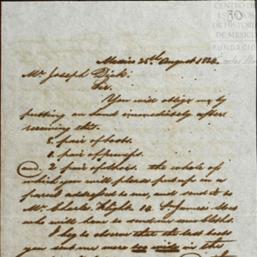 CENTRO DE
ESTUDIOS
DE HISTORIA
DE MEXICO
FUNDACIÓN
30
Mexico 25th August 1824.
Mr Joseph Dick.
Sir.
You will oblige me by
putting in hand immediately after
receiving this.
2. pair of boots.
1. pair of pumps.
and. 2 pair of shoes. the whole of
which you will please put up in a
parcel addressed to me, and send it to
Mr Charles
who will have to
I beg to observe that the last boots
you sent me were too wide in the